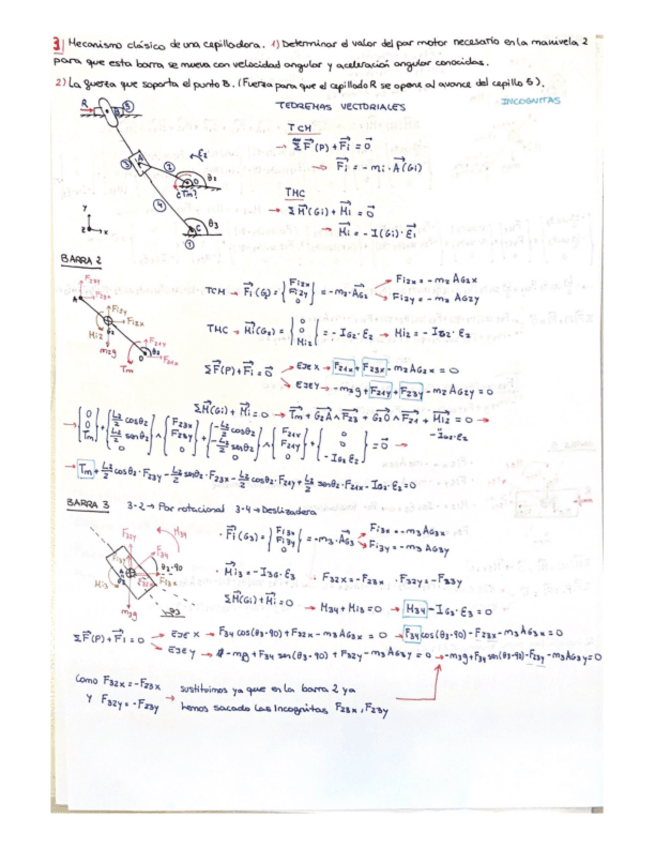 3] Mecanismo clásico de una cepilladora. 1) Determinar el valor del par motor necesario en la manivela 2
para que esta barra se mueva con velocidad angular y aceleración angular conocidas.
2) La fuerza que soporta el punto B. (Fuerza para que el cepillado R se opone al avance del cepillo 5).
TEOREMAS VECTORIALES
INCOGNITAS
TCH
→ ΣF(P)+Fi = 0
→ Fi = -mi·A(Gi)
TMC
→ ΣM(Gi)+Mi = 0
→ Mi = -I(Gi)·Ei
R
5
B
3
A
2
E2
O
θ2
¿Tm?
4
C
θ3
1
Y
Z
X
BARRA 2
TCH → Fi(G) = {Fi2x Fi2y 0} = -m2·AG2
Fi2x = -m2 AG2x
Fi2y = -m2 AG2y
TMC → Mi(G2) = {0 0 Mi2} = -IG2·E2 → Mi2 = -IG2·E2
ΣF(P)+Fi = 0
EJE X → F21x + F23x - m2 AG2x = 0
EJE Y → -m2g + F21y + F23y - m2 AG2y = 0
ΣM(Gi)+Mi = 0 → Tm + G2A ∧ F23 + G2O ∧ F21 + Mi2 = 0 →
-IG2·E2
→ {0 0 Tm} + {L2/2 cosθ2 L2/2 senθ2 0} ∧ {F23x F23y 0} + {-L2/2 cosθ2 -L2/2 senθ2 0} ∧ {F21x F21y 0} + {0 0 -IG2·E2} = 0 →
→ Tm + L2/2 cosθ2·F23y - L2/2 senθ2·F23x - L2/2 cosθ2·F21y + L2/2 senθ2·F21x - IG2·E2 = 0
BARRA 3 3-2 → Par rotacional 3-4 → Deslizadera
· Fi(G3) = {Fi3x Fi3y 0} = -m3·AG3
Fi3x = -m3 AG3x
Fi3y = -m3 AG3y
· Mi3 = -IG3·E3 · F32x = -F23x · F32y = -F23y
ΣM(Gi)+Mi = 0 → M34 + Mi3 = 0 → M34 - IG3·E3 = 0
ΣF(P)+Fi = 0
EJE X → F34 cos(θ3-90) + F32x - m3 AG3x = 0 → F34 cos(θ3-90) - F23x - m3 AG3x = 0
EJE Y → -mg + F34 sen(θ3-90) + F32y - m3 AG3y = 0 → -m3g + F34 sen(θ3-90) - F23y - m3 AG3y = 0
Como F32x = -F23x
y F32y = -F23y
→ sustituimos ya que en la barra 2 ya
hemos sacado las Incognitas F23x, F23y